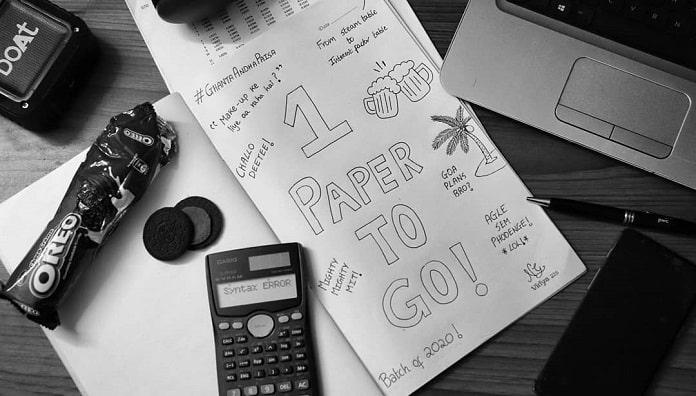 From steam table
to
Interest factor table
#GhantaAndhaPaisa
"Make-up ke
liye aa raha hai?"
CHALLO
DEETEE!
1
PAPER
TO
GO!
GOA
PLANS
BRO?
AGLE
SEM
PHODENGE!
*LOL!*
MIGHTY
MIGHTY
MIT!
Batch of 2020!
BOAT
OREO
OREO
CASIO
Syntax ERROR